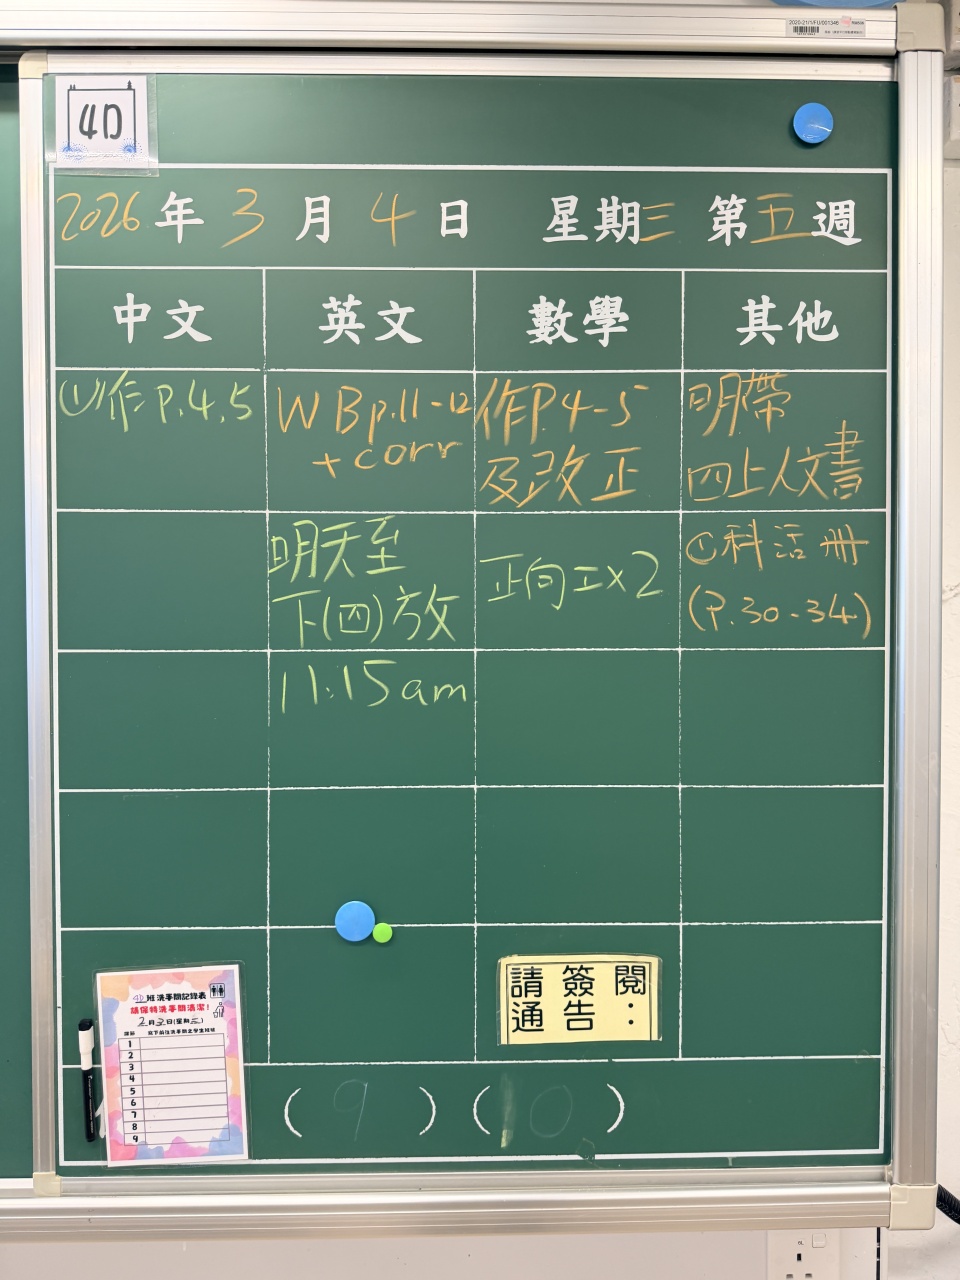 2020-21/1/FU/001346
4D
2026年3月4日 星期三 第五週
中文 英文 數學 其他
①作P.4,5
WBp.11-12
+corr
作P.4-5
及改正
明帶
四上人文書
明天至
下(四)放
正向工x2
①科活冊
(P.30-34)
11:15am
4D班洗手間記錄表
請保持洗手間清潔！
2月3日(星期三)
1
2
3
4
5
6
7
8
9
請簽閱
通告：
( 9 ) ( 10 )